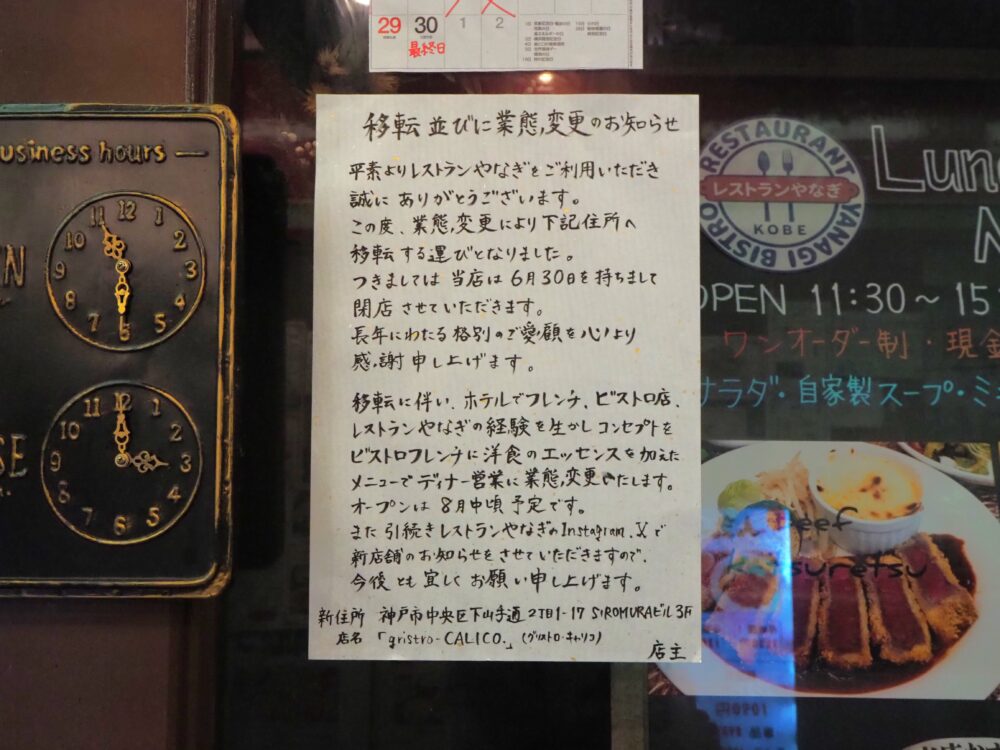 29 30 1 2
最終日
移転 並びに業態変更のお知らせ
平素よりレストランやなぎをご利用いただき
誠に ありがとうございます。
この度、業態変更により下記住所へ
移転する運びとなりました。
つきましては 当店は6月30日を持ちまして
閉店させていただきます。
長年にわたる格別のご愛顧を心より
感謝申し上げます。
移転に伴い、ホテルでフレンチ、ビストロ店、
レストランやなぎの経験を生かしコンセプトを
ビストロフレンチに洋食のエッセンスを加えた
メニューでディナー営業に業態変更いたします。
オープンは 8月中頃 予定です。
また 引続きレストランやなぎのInstagram、Xで
新店舗のお知らせをさせていただきますので、
今後とも宜しくお願い申し上げます。
新住所 神戸市中央区下山手通2丁目1-17 SIROMURAビル3F
店名 「gristro-CALICO.」(グリストロ・キャリコ)
店主
usiness hours
11 12 1
10 2
9 3
8 4
7 5
6
11 12 1
10 2
9 3
8 4
7 5
6
SE
RESTAURANT
レストランやなぎ
KOBE
YANAGI BISTRO
Lun
OPEN 11:30〜15
ワンオーダー制・現金
サラダ・自家製スープ・ミ
Beef
Katsuretsu